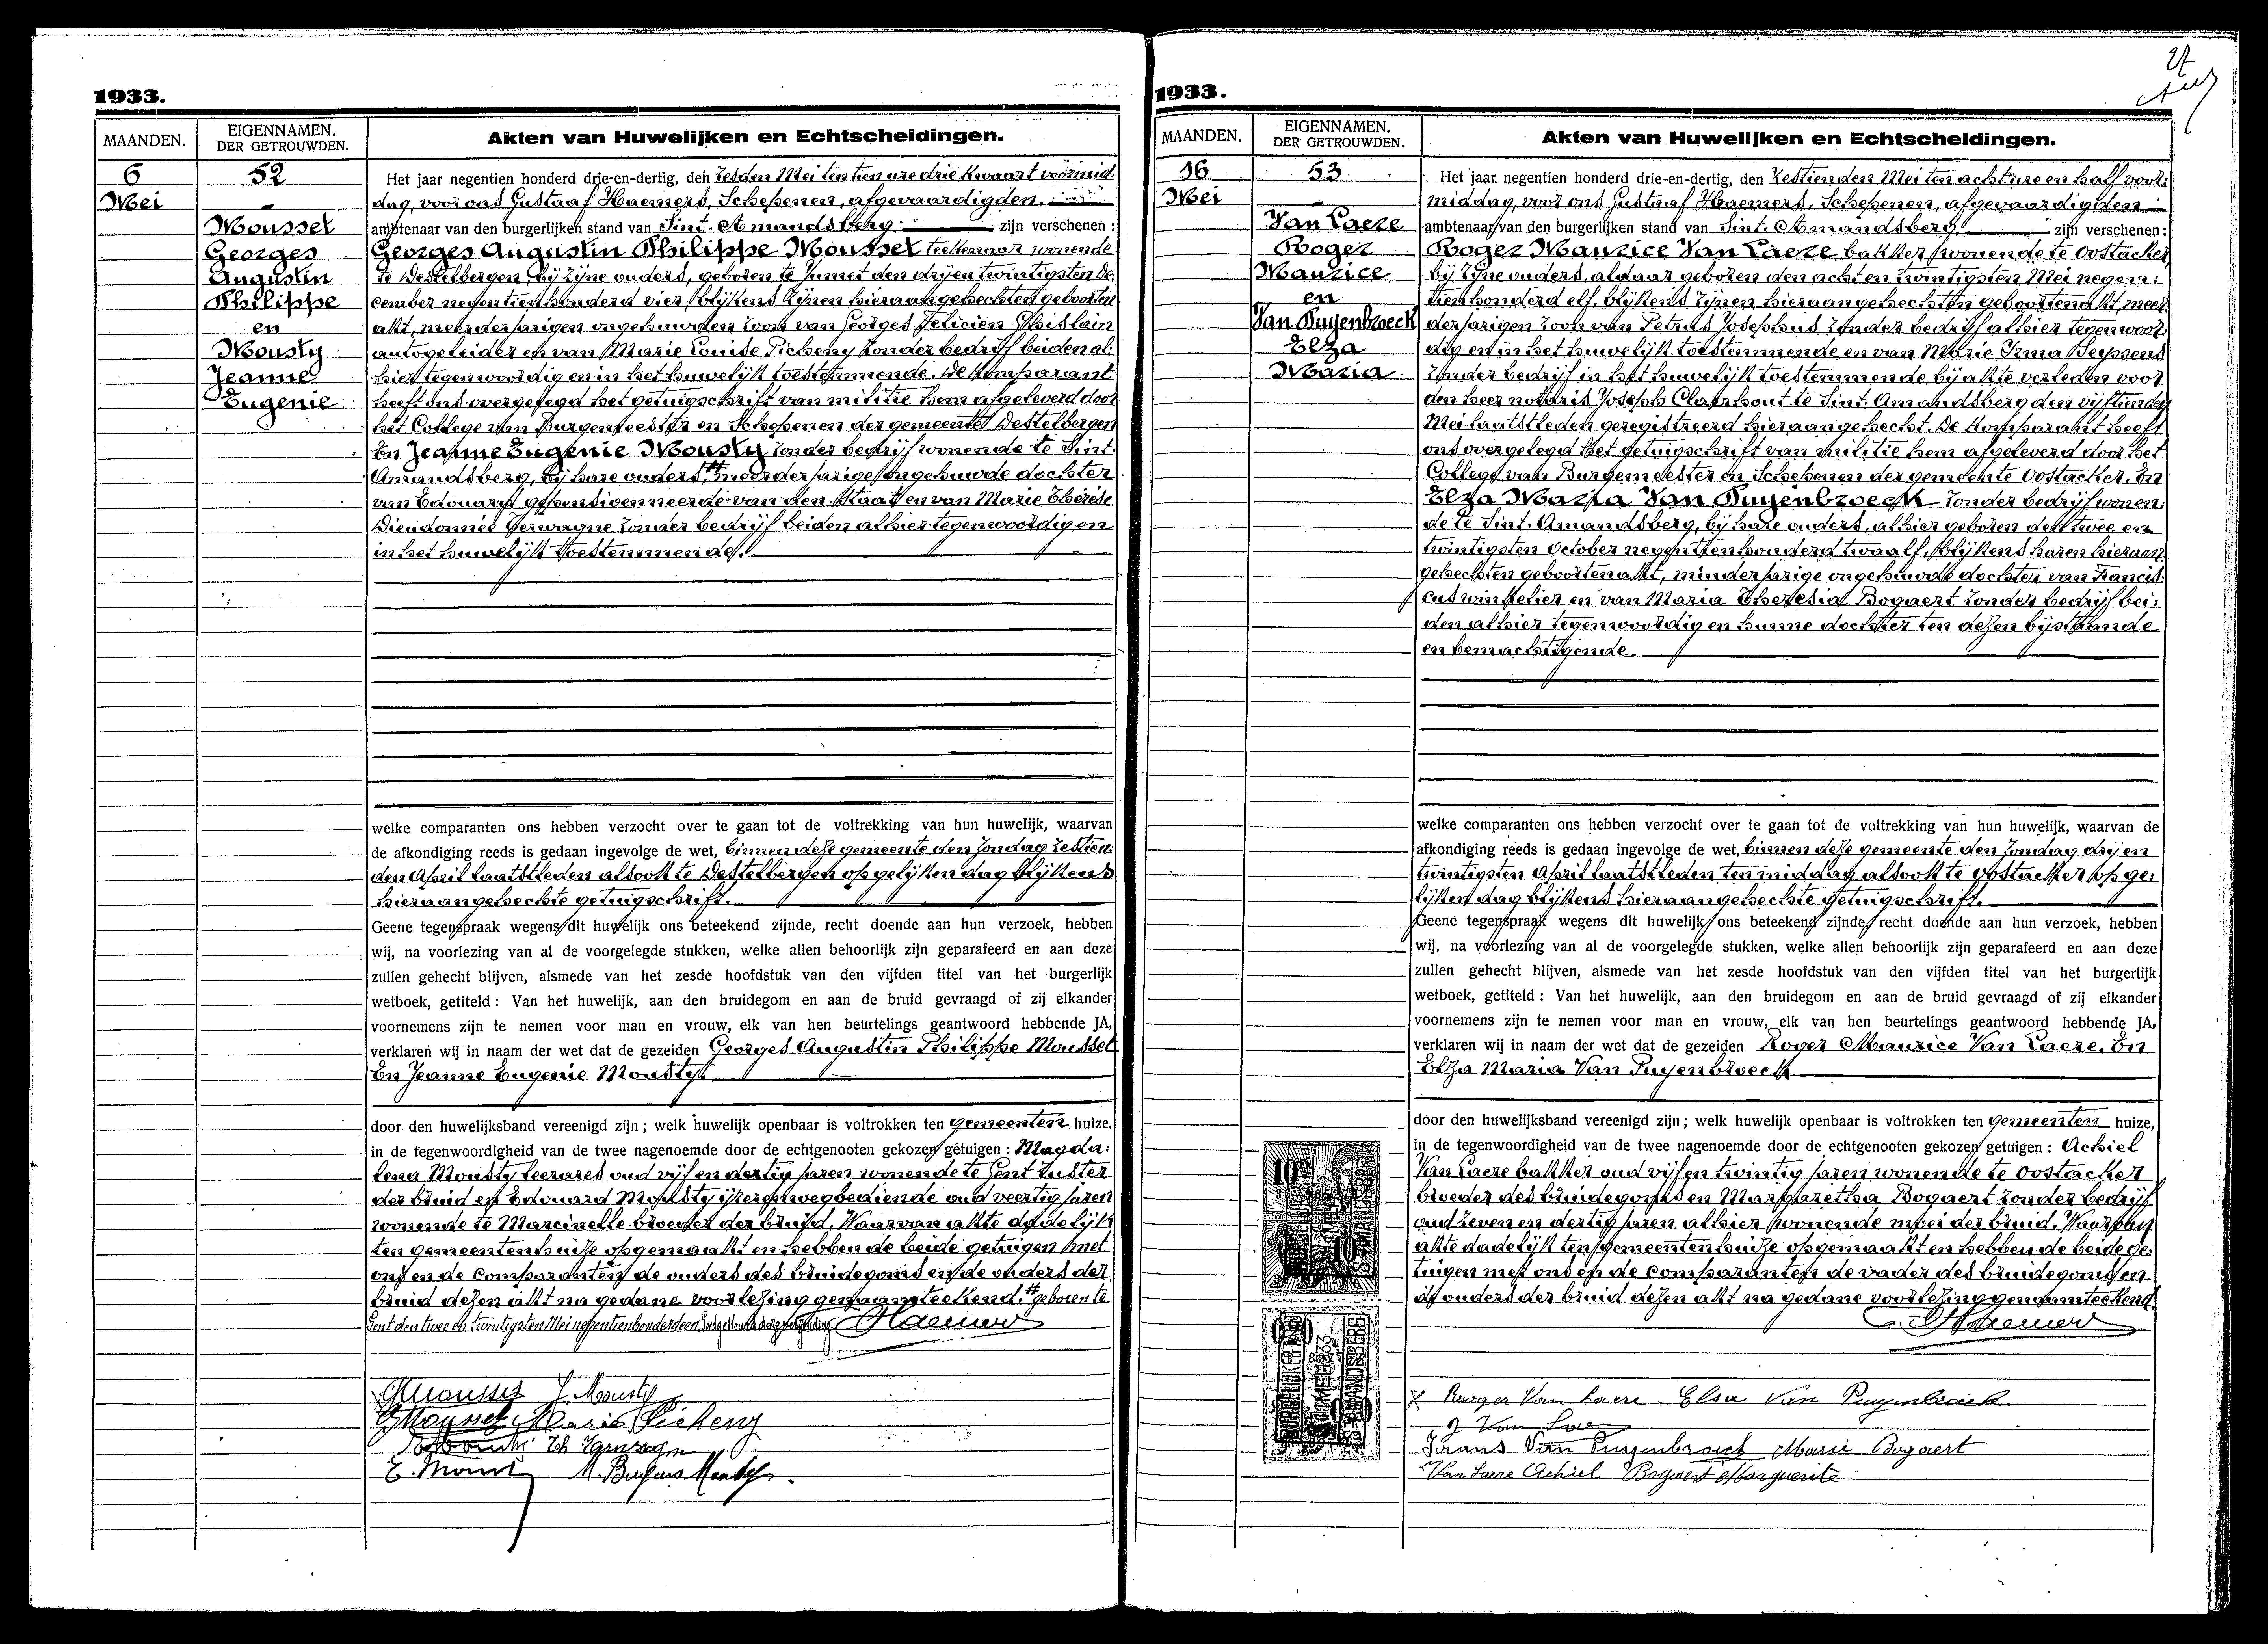 1933.
MAANDEN.
EIGENNAMEN.
DER GETROUWDEN.
Akten van Huwelijken en Echtscheidingen.
6
Mei
52
Moussel
Georges
Augustin
Philippe
en
Mousty
Jeanne
Eugenie
Het jaar negentien honderd drie-en-dertig, den zesden Mei ten tien ure drie kwaart voormid:
dag, voor ons Gustaaf Haemers, Schepenen, afgevaardigden
ambtenaar van den burgerlijken stand van Sint-Amandsberg zijn verschenen :
Georges Augustin Philippe Moussel teekenaar wonende
te Destelbergen, bij zijne ouders, geboren te Jumet den drijen twintigsten De
cember negentienhonderd vier, blijkens zijnen hieraangehechten geboorten
akt, meerderjarigen ongehuwden zoon van Georges Felicien Ghislain
autogeleider en van Marie Louise Picheny zonder bedrijf beiden al:
hier tegenwoordig en in het huwelijk toestemmende. De Komparant
heeft ons overgelegd het getuigschrift van militie hem afgeleverd door
het College van Burgemeester en Schepenen der gemeente Destelbergen
En Jeanne Eugenie Mousty zonder bedrijf wonende te Sint.
Amandsberg, bij hare ouders, # meerderjarige ongehuwde dochter
van Edouard gepensioenneerde van den Staat en van Marie Thérèse
Dieudonnée Verwagne zonder bedrijf beiden alhier tegenwoordig en
in het huwelijk toestemmende.
welke comparanten ons hebben verzocht over te gaan tot de voltrekking van hun huwelijk, waarvan
de afkondiging reeds is gedaan ingevolge de wet, binnen deze gemeente den Zondag zestien:
den April laatstleden alsook te Destelbergen op gelijken dag blijkens
hieraangehechte getuigschrift.
Geene tegenspraak wegens dit huwelijk ons beteekend zijnde, recht doende aan hun verzoek, hebben
wij, na voorlezing van al de voorgelegde stukken, welke allen behoorlijk zijn geparafeerd en aan deze
zullen gehecht blijven, alsmede van het zesde hoofdstuk van den vijfden titel van het burgerlijk
wetboek, getiteld : Van het huwelijk, aan den bruidegom en aan de bruid gevraagd of zij elkander
voornemens zijn te nemen voor man en vrouw, elk van hen beurtelings geantwoord hebbende JA,
verklaren wij in naam der wet dat de gezeiden Georges Augustin Philippe Moussel
En Jeanne Eugenie Mousty
door den huwelijksband vereenigd zijn ; welk huwelijk openbaar is voltrokken ten gemeenten huize,
in de tegenwoordigheid van de twee nagenoemde door de echtgenooten gekozen getuigen : Magda:
lena Mousty leerares oud vijf en dertig jaren wonende te Gent zuster
der bruid en Edouard Mousty ijzerenwegbediende oud veertig jaren
wonende te Marcinelle broeder der bruid. Waarvan akte dadelijk
ten gemeentenhuize opgemaakt en hebben de beide getuigen met
ons en de comparanten de ouders des bruidegoms en de ouders der
bruid dezen akt na gedane voorlezing genaamteekend. # geboren te
Gent den twee en twintigsten Mei negentienhonderdeen,
Haemers
GMoussel J. Mousty
GMoussel Marie Picheny
Th
E. Mousty
1933.
27
MAANDEN.
EIGENNAMEN.
DER GETROUWDEN.
Akten van Huwelijken en Echtscheidingen.
16
Mei
53
Van Laere
Roger
Maurice
en
Van Puyenbroeck
Elza
Maria
Het jaar negentien honderd drie-en-dertig, den zestienden Mei ten acht ure en half voor:
middag, voor ons Gustaaf Haemers, Schepenen, afgevaardigden
ambtenaar van den burgerlijken stand van Sint-Amandsberg zijn verschenen :
Roger Maurice Van Laere bakker wonende te Oostacker
bij zijne ouders, aldaar geboren den acht en twintigsten Mei negen:
tienhonderd elf, blijkens zijnen hieraangehechten geboortenakt, meer
derjarigen zoon van Petrus Josephus zonder bedrijf alhier tegenwoor:
dig en in het huwelijk toestemmende en van Marie Irma Seyssens
zonder bedrijf in het huwelijk toestemmende bij akte verleden voor
den heer notaris Joseph Claerhout te Sint-Amandsberg den vijftienden
Mei laatstleden geregistreerd hieraangehecht. De Komparant heeft
ons overgelegd het getuigschrift van militie hem afgeleverd door het
College van Burgemeester en Schepenen der gemeente Oostacker. En
Elza Maria Van Puyenbroeck zonder bedrijf wonen:
de te Sint. Amandsberg, bij hare ouders, alhier geboren den twee en
twintigsten October negentienhonderd twaalf, blijkens haren hieraan
gehechten geboortenakt, minderjarige ongehuwde dochter van Francis:
cus winkelier en van Maria Theresia Bogaert zonder bedrijf bei:
den alhier tegenwoordig en hunne dochter ten dezen bijstaande
en bemachtigende.
welke comparanten ons hebben verzocht over te gaan tot de voltrekking van hun huwelijk, waarvan de
afkondiging reeds is gedaan ingevolge de wet, binnen deze gemeente den Zondag drij en
twintigsten April laatstleden ten middag alsook te Oostacker op ge:
lijken dag blijkens hieraangehechte getuigschrift.
Geene tegenspraak wegens dit huwelijk ons beteekend zijnde, recht doende aan hun verzoek, hebben
wij, na voorlezing van al de voorgelegde stukken, welke allen behoorlijk zijn geparafeerd en aan deze
zullen gehecht blijven, alsmede van het zesde hoofdstuk van den vijfden titel van het burgerlijk
wetboek, getiteld : Van het huwelijk, aan den bruidegom en aan de bruid gevraagd of zij elkander
voornemens zijn te nemen voor man en vrouw, elk van hen beurtelings geantwoord hebbende JA,
verklaren wij in naam der wet dat de gezeiden Roger Maurice Van Laere. En
Elza Maria Van Puyenbroeck
door den huwelijksband vereenigd zijn ; welk huwelijk openbaar is voltrokken ten gemeenten huize,
in de tegenwoordigheid van de twee nagenoemde door de echtgenooten gekozen getuigen : Achiel
Van Laere bakker oud vijf en twintig jaren wonende te Oostacker
broeder des bruidegoms en Margaretha Bogaert zonder bedrijf
oud zeven en dertig jaren alhier wonende moei der bruid. Waarvan
akte dadelijk ten gemeentenhuize opgemaakt en hebben de beide ge:
tuigen met ons en de comparanten de vader des bruidegoms en
de ouders der bruid dezen akt na gedane voorlezing genaamteekend
Haemers
Rooger Van Laere Elsa Van Puyenbroeck
Frans Van Puyenbroeck Marie Bogaert
Van Laere Achiel Bogaert Marguerite